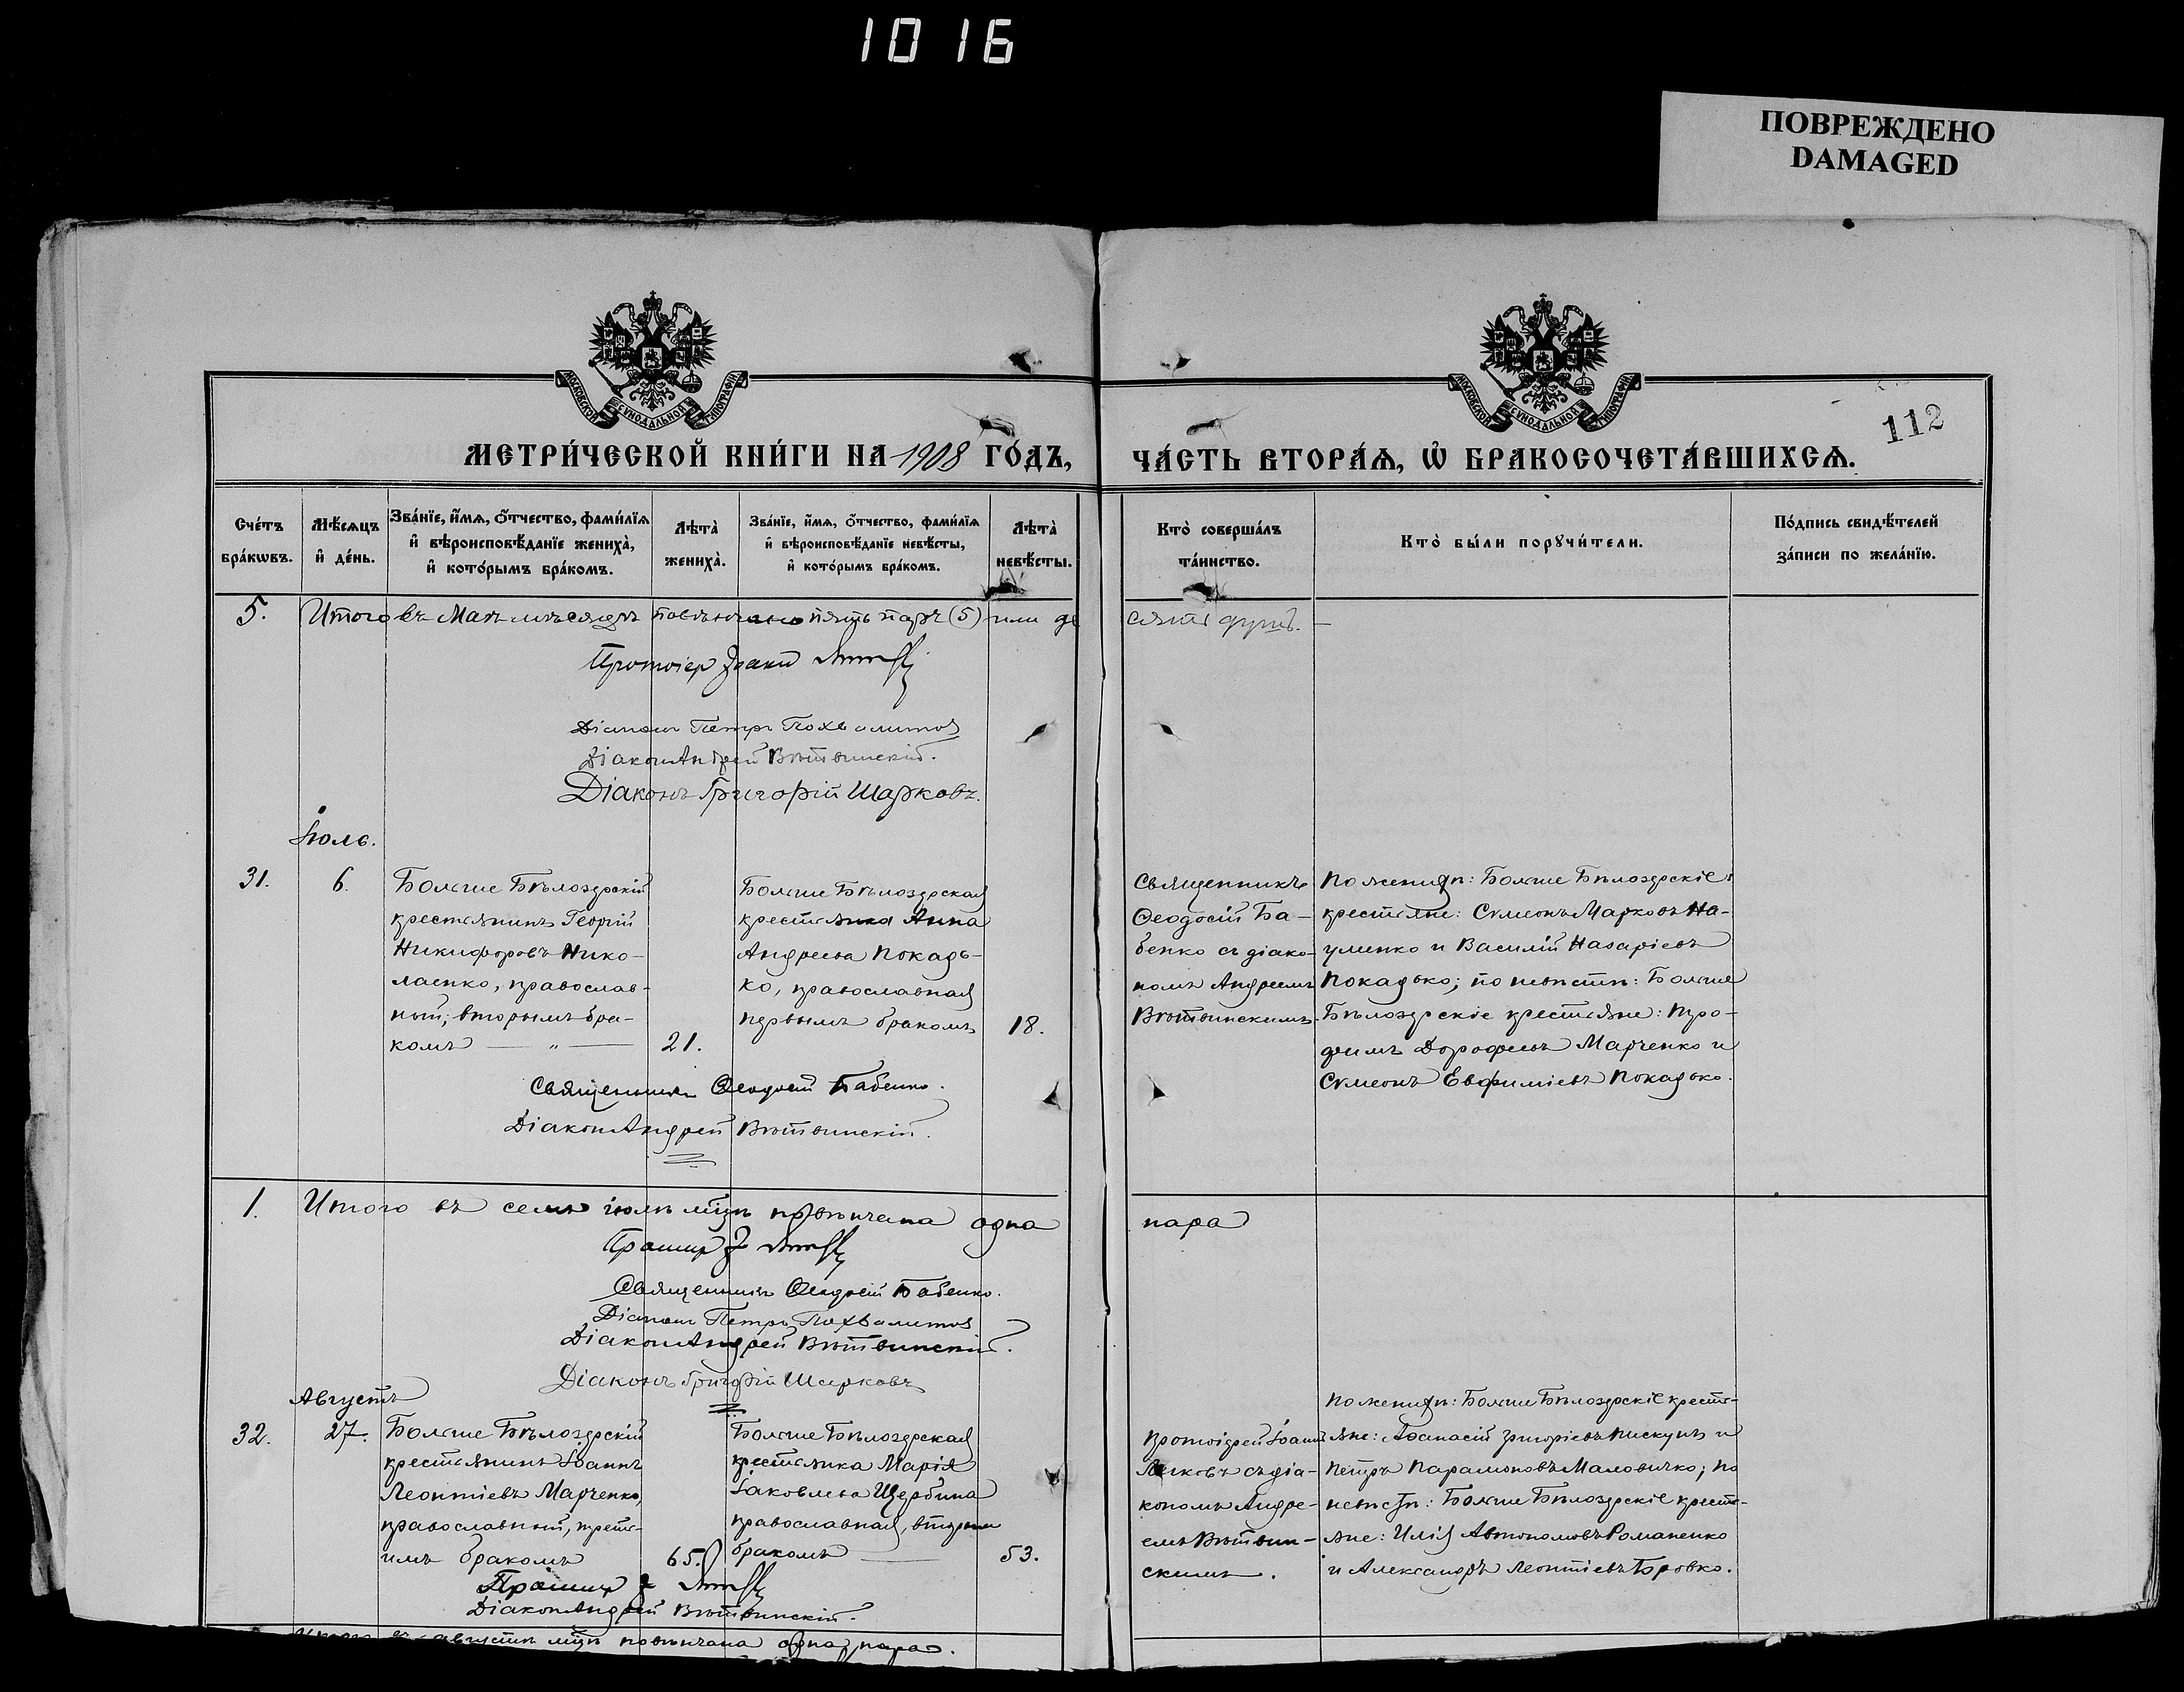 1016
ПОВРЕЖДЕНО
DAMAGED
МОСКОВСКОЙ СѴНОДАЛЬНОЙ ТИПОГРАФІИ
МОСКОВСКОЙ СѴНОДАЛЬНОЙ ТИПОГРАФІИ
112
МЕТРИ́ЧЕСКОЙ КНИ́ГИ НА 1908 ГО́ДЪ,
ЧА́СТЬ ВТОРА́Ѧ, Ѡ҆ БРАКОСОЧЕТА́ВШИХСѦ.
Сче́тъ бра́кѡвъ.
Мѣ́сѧцъ и҆ де́нь.
Зва́нїе, и҆́мѧ, ѻ҆́тчество, фами́лїѧ и҆ вѣроисповѣ́данїе жениха̀, и҆ кото́рымъ бра́комъ.
Лѣта̀ жениха̀.
Зва́нїе, и҆́мѧ, ѻ҆́тчество, фами́лїѧ и҆ вѣроисповѣ́данїе невѣ́сты, и҆ кото́рымъ бра́комъ.
Лѣта̀ невѣ́сты.
Кто̀ соверша́лъ та́инство.
Кто̀ бы́ли порꙋчи́тели.
По́дпись свидѣ́телей за́писи по жела́нїю.
5. Итого въ Маѣ мѣсяцѣ повѣнчано пять паръ (5) или де
сять душъ. —
Діаконъ Петръ Похвалитов
Діаконъ Андрей Вѣтвинскій.
Діаконъ Григорій Шарковъ.
Іюль.
31.
6.
Больше Бѣлозерскій
крестьянинъ Георгій
Никифоровъ Нико-
лаенко, православ-
ный; вторымъ бра-
комъ — „ —
21.
Больше Бѣлозерская
крестьянка Анна
Андреева Покадь-
ко, православная
первымъ бракомъ
18.
Священникъ
Ѳеодосій Ба-
бенко съ діако-
номъ Андреемъ
Вѣтвинскимъ.
По женихѣ: Больше Бѣлозерскіе
крестьяне: Сѵмеонъ Марковъ На-
уменко и Василій Назаріевъ
Покадько; по невѣстѣ: Больше
Бѣлозерскіе крестьяне: Тро-
фимъ Дорофеевъ Марченко и
Сѵмеонъ Евфиміевъ Покадько.
Священникъ Ѳеодосій Бабенко.
Діаконъ Андрей Вѣтвинскій.
1. Итого въ семъ іюлѣ мцѣ повѣнчана одна
пара
Священникъ Ѳеодосій Бабенко.
Діаконъ Петръ Похвалитов
Діаконъ Андрей Вѣтвинскій.
Діаконъ Григорій Шарковъ
Августъ
32.
27.
Больше Бѣлозерскій
крестьянинъ Іоаннъ
Леонтіевъ Марченко,
православный, треть-
имъ бракомъ
65.
Больше Бѣлозерская
крестьянка Марія
Іаковлева Щербина
православная, вторымъ
бракомъ —
53.
Протоіерей Іоаннъ
съ діа-
кономъ Андре-
емъ Вѣтвин-
скимъ.
По женихѣ: Больше Бѣлозерскіе кресть-
яне: Аѳанасій Григоріевъ Пискунъ и
Петръ Парамоновъ Маловичко; по
невѣстѣ: Больше Бѣлозерскіе кресть-
яне: Илія Автономовъ Романенко
и Александръ Леонтіевъ Боровко.
Діаконъ Андрей Вѣтвинскій.
Итого въ августѣ мцѣ повѣнчана одна пара.